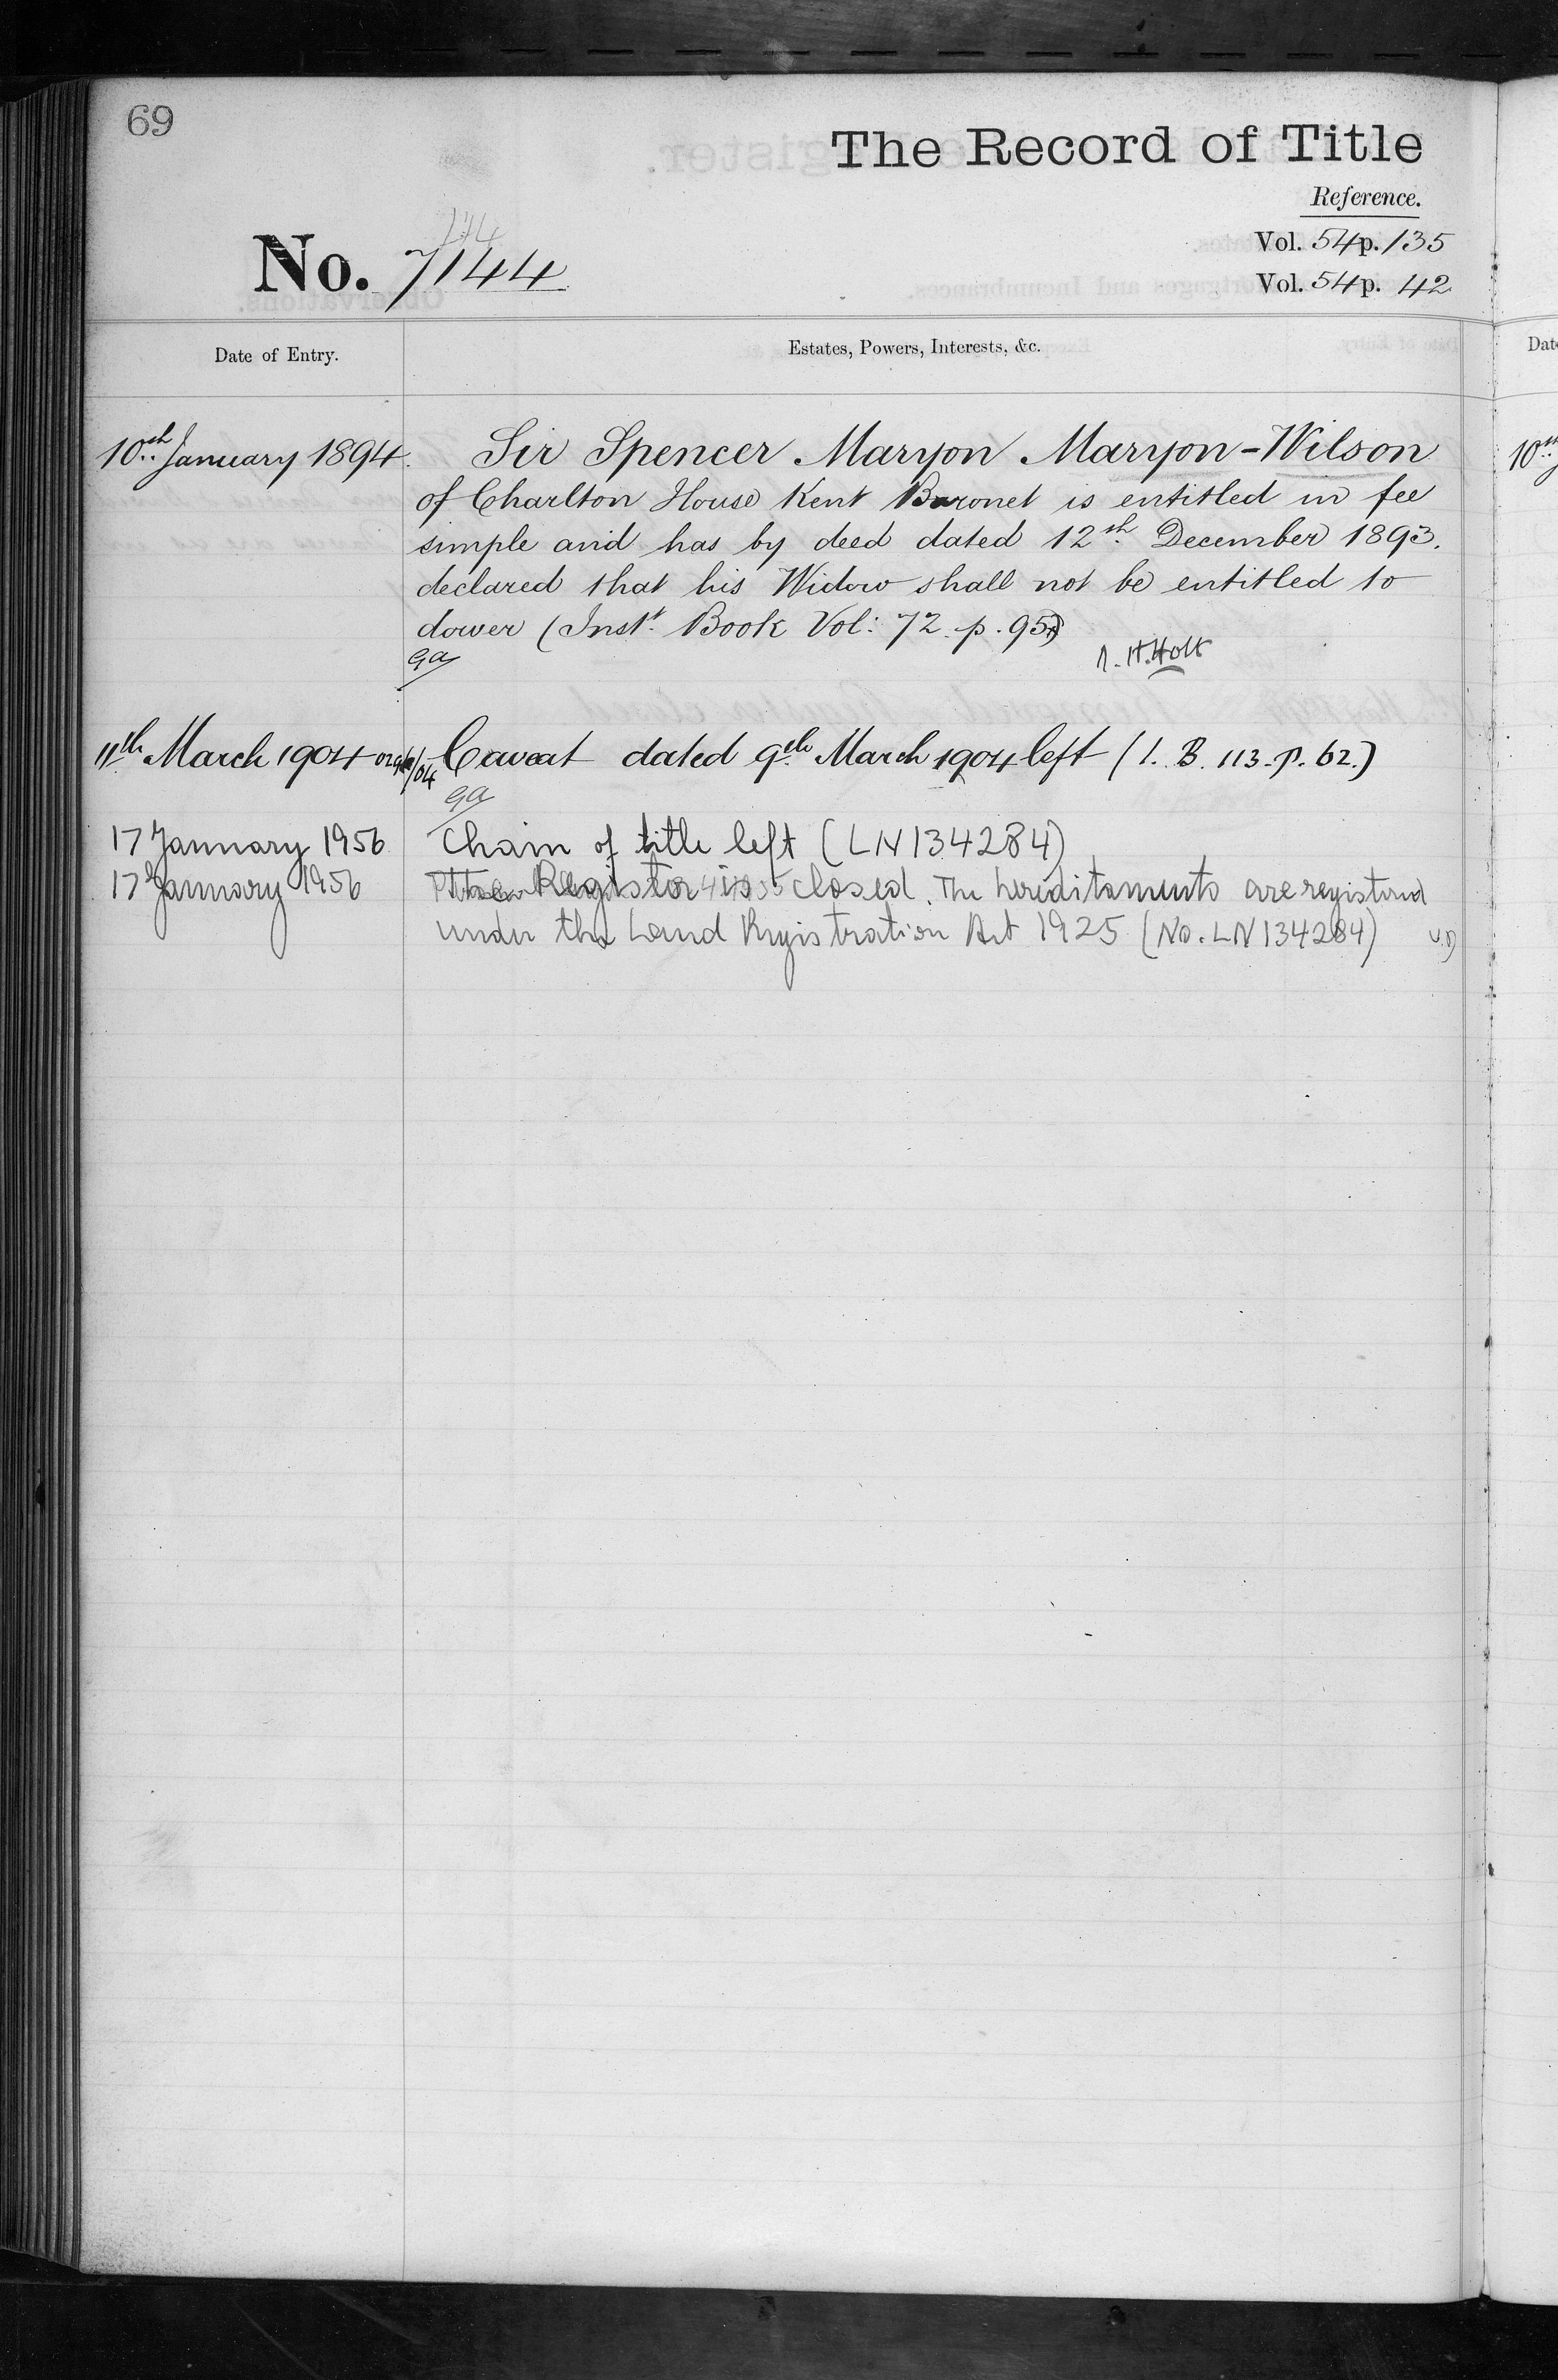 69
The Record of Title
Reference.
144
No. 7144
Vol. 54 p. 135
Vol. 54 p. 42
Date of Entry.
Estates, Powers, Interests, &c.
Dat
10th January 1894.
Sir Spencer Maryon Maryon-Wilson
of Charlton House Kent Baronet is entitled in fee
simple and has by deed dated 12th December 1893.
declared that his Widow shall not be entitled to
dower (Inst. Book Vol: 72. p. 95)
H. Holt
10th
11th March 1904
Caveat dated 9th March 1904 left (I. B. 113. p. 62.)
17 January 1956
Chain of title left (LN134284)
17 January 1956
The Register is closed. The hereditaments are registered
under the Land Registration Act 1925 (No. LN134284)